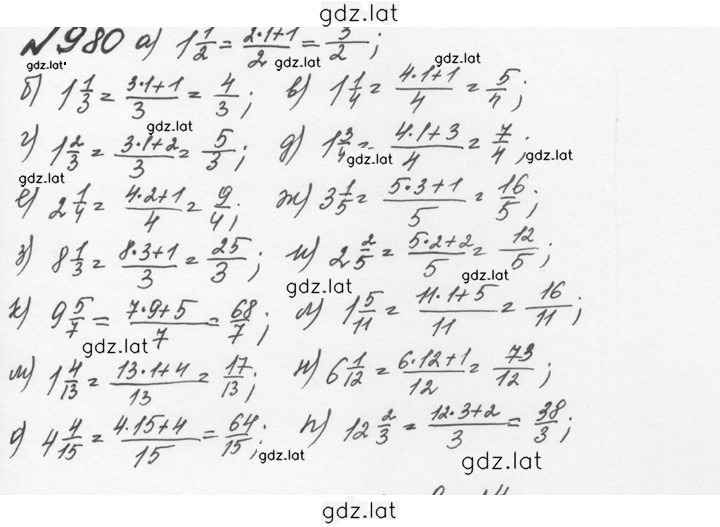 gdz.lat
№980 а) 1 1/2 = (2·1+1)/2 = 3/2;
gdz.lat gdz.lat gdz.lat
б) 1 1/3 = (3·1+1)/3 = 4/3; в) 1 1/4 = (4·1+1)/4 = 5/4;
gdz.lat
г) 1 2/3 = (3·1+2)/3 = 5/3; д) 1 3/4 = (4·1+3)/4 = 7/4;
gdz.lat gdz.lat gdz.lat
е) 2 1/4 = (4·2+1)/4 = 9/4; ж) 3 1/5 = (5·3+1)/5 = 16/5;
з) 8 1/3 = (8·3+1)/3 = 25/3; и) 2 2/5 = (5·2+2)/5 = 12/5;
gdz.lat
к) 9 5/7 = (7·9+5)/7 = 68/7; л) 1 5/11 = (11·1+5)/11 = 16/11;
gdz.lat
м) 1 4/13 = (13·1+4)/13 = 17/13; н) 6 1/12 = (6·12+1)/12 = 73/12;
о) 4 4/15 = (4·15+4)/15 = 64/15; п) 12 2/3 = (12·3+2)/3 = 38/3;
gdz.lat gdz.lat
gdz.lat